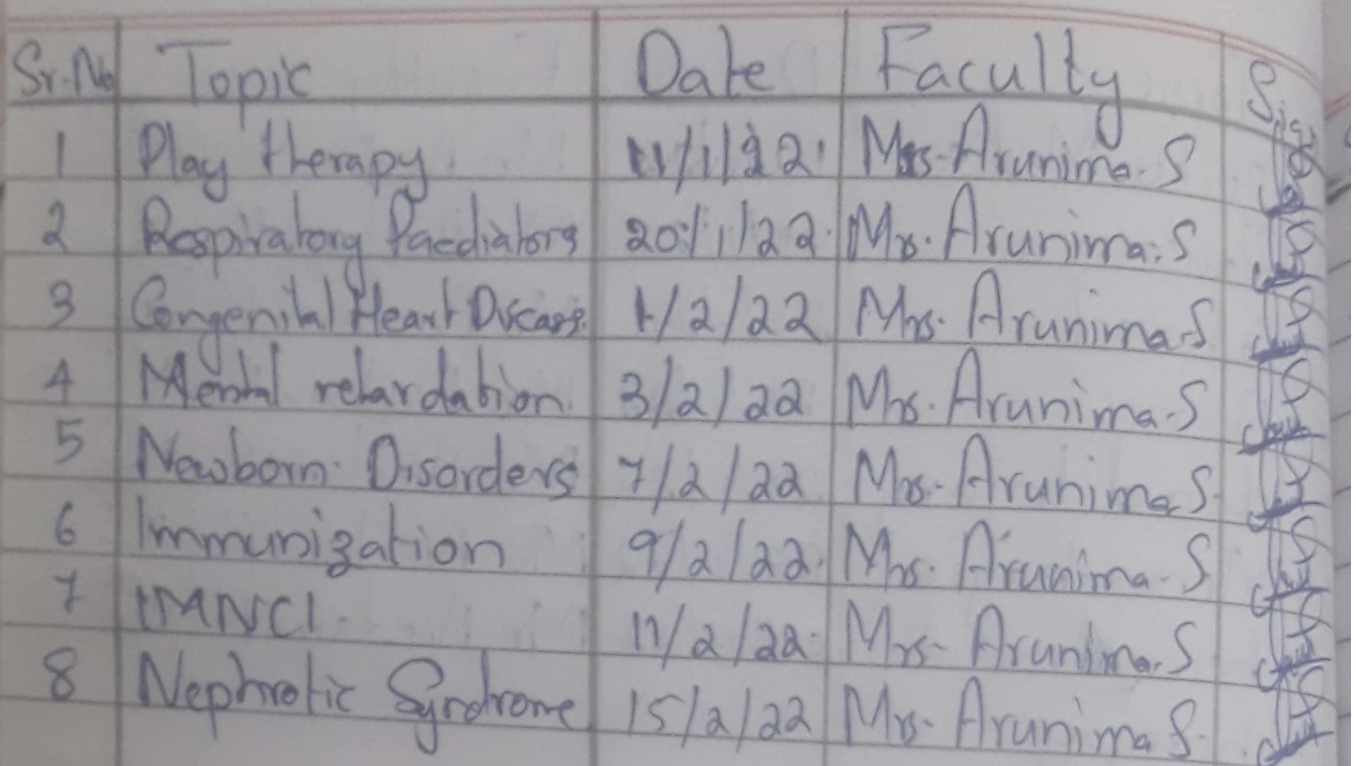 Sr.No Topic Date Faculty Sign
1 Play therapy 11/1/22 Mrs. Arunima. S
2 Respiratory Paediators 20/1/22 Mrs. Arunima. S
3 Congenital Heart Disease 1/2/22 Mrs. Arunima. S
4 Mental retardation. 3/2/22 Mrs. Arunima. S
5 Newborn Disorders 7/2/22 Mrs. Arunima S
6 Immunization 9/2/22 Mrs. Arunima. S
7 IMNCI. 11/2/22 Mrs. Arunima. S
8 Nephrotic Syndrome 15/2/22 Mrs. Arunima S